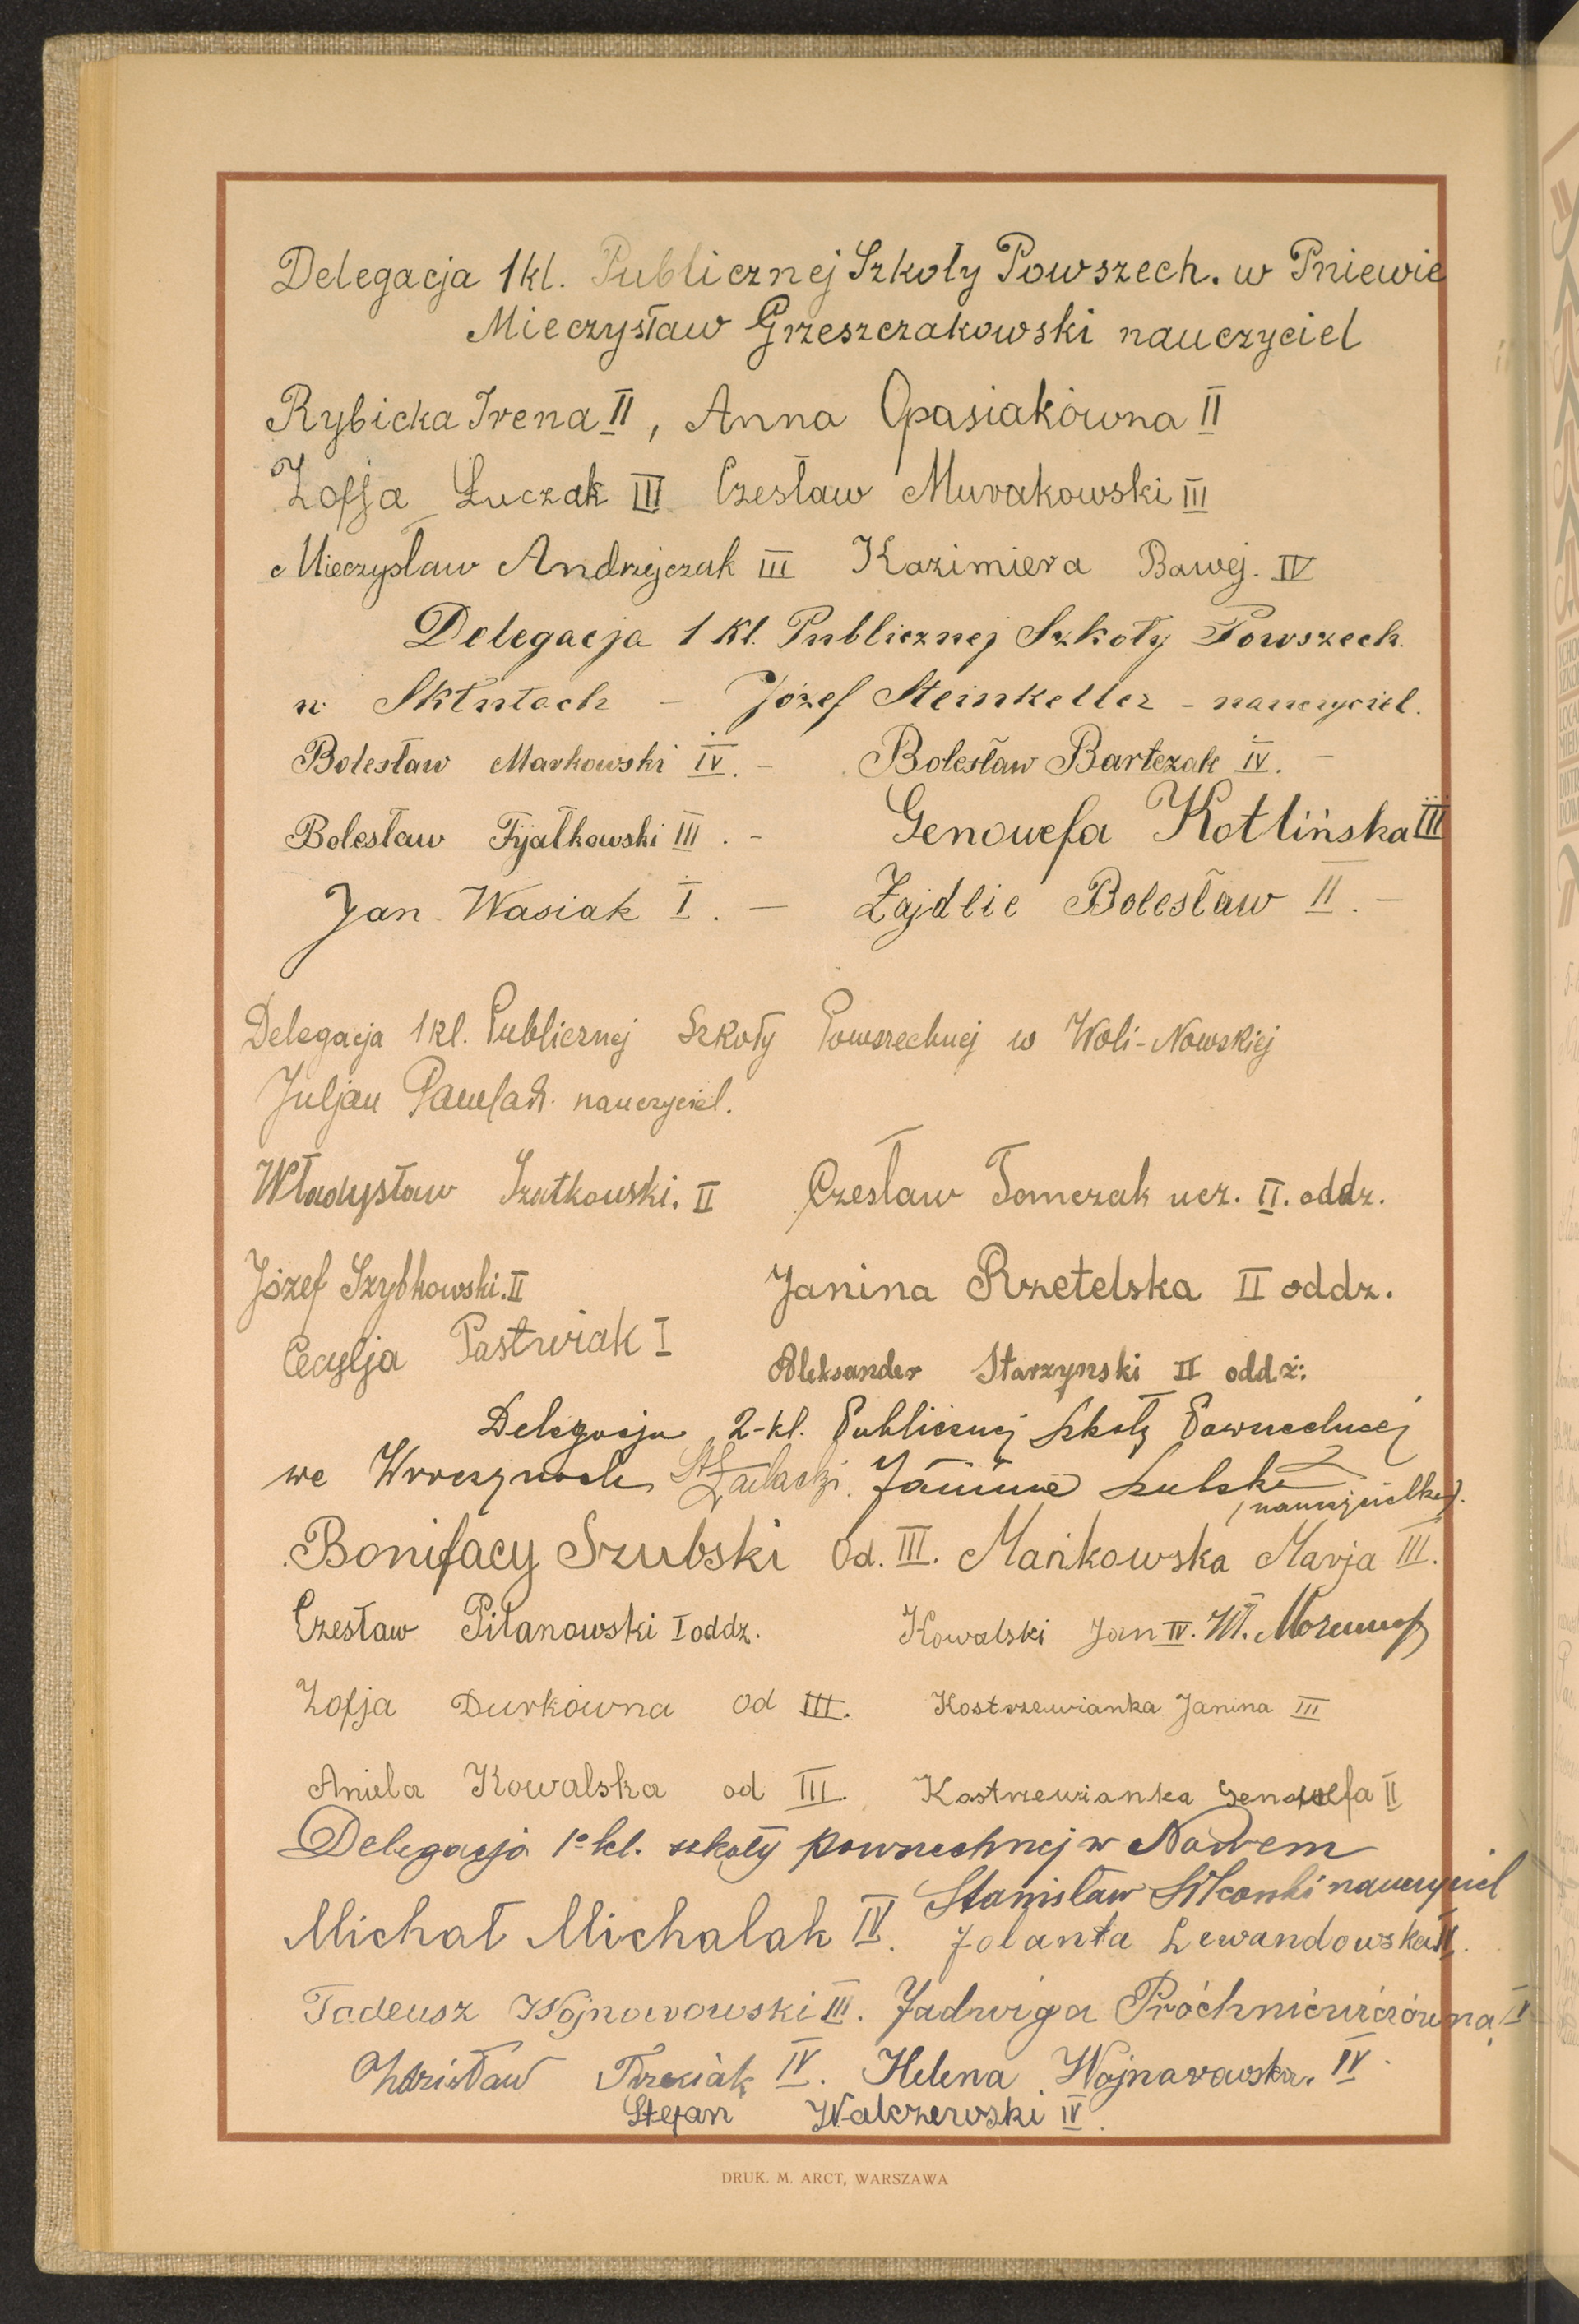 Delegacja 1 kl. Publicznej Szkoły Powszech. w Pniewie
Mieczysław Grzeszczakowski nauczyciel
Rybicka Irena II, Anna Opasiakówna II
Zofja Łuczak III Czesław Murakowski III
Mieczysław Andrzejczak III Kazimiera Bawej. IV
Delegacja 1 kl. Publicznej Szkoły Powszech.
w Skłutach – Józef Steinkeller – nauczyciel.
Bolesław Markowski IV. – Bolesław Bartczak IV. –
Bolesław Fijałkowski III. – Genowefa Kotlińska III
Jan Wasiak I. – Zajdlic Bolesław II. –
Delegacja 1 kl. Publicznej Szkoły Powszechnej w Woli-Nowskiej
Juljan nauczyciel.
Władysław Szatkowski. II Czesław Tomczak ucz. II. oddz.
Józef Szybkowski. II Janina Rzetelska II oddz.
Cecylja Pastwiak I Aleksander Starzynski II oddz:
Delegacja 2-kl. Publicznej Szkoły Powszechnej
we Janina Szulska (nauczycielka).
Bonifacy Szubski Od. III. Mańkowska Marja III.
Czesław Pilanowski I oddz. Kowalski Jan IV. Wł.
Zofja Durkówna od III. Kostrzewianka Janina III
Aniela Kowalska od III Kostrzewianka Genowefa II
Delegacja 1º kl. szkoły powszechnej w Nowem
Stanisław nauczyciel
Michał Michalak IV. Jolanta Lewandowska II.
Tadeusz Wojnarowski III. Jadwiga Próchniewiczówna
Zdzisław Trzeciak IV. Helena Wojnarowska. IV.
Stefan Walczewski IV.
DRUK. M. ARCT, WARSZAWA